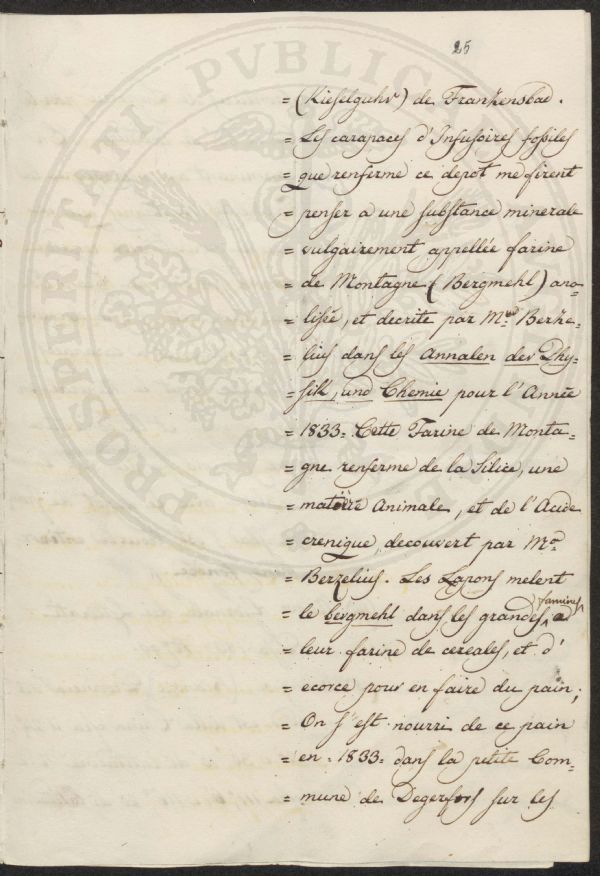 25
= (Kieselguhr) de Frankensbad.
= Les carapaces d'Infusoires fossiles
= que renferme ce depot me firent
= penser a une substance minerale
= vulgairement appellée farine
= de Montagne (Bergmehl) ana=
= lisée, et decrite par Mr. Berze=
= lius dans les Annalen der Phy=
= sik, und Chemie pour l'Année
= 1833. Cette Farine de Monta=
= gne renferme de la Silice, une
= matière Animale, et de l'Acide
= crenique, decouvert par Mr.
= Berzelius. Les Lapons melent
= le bergmehl dans les grandes famines, a
= leur farine de cereales, et d'
= ecorce pour en faire du pain;
= On s'est nourri de ce pain
= en 1833 dans la petite Com=
= mune de Degerfors sur les
PROSPERITATI PVBLICAE